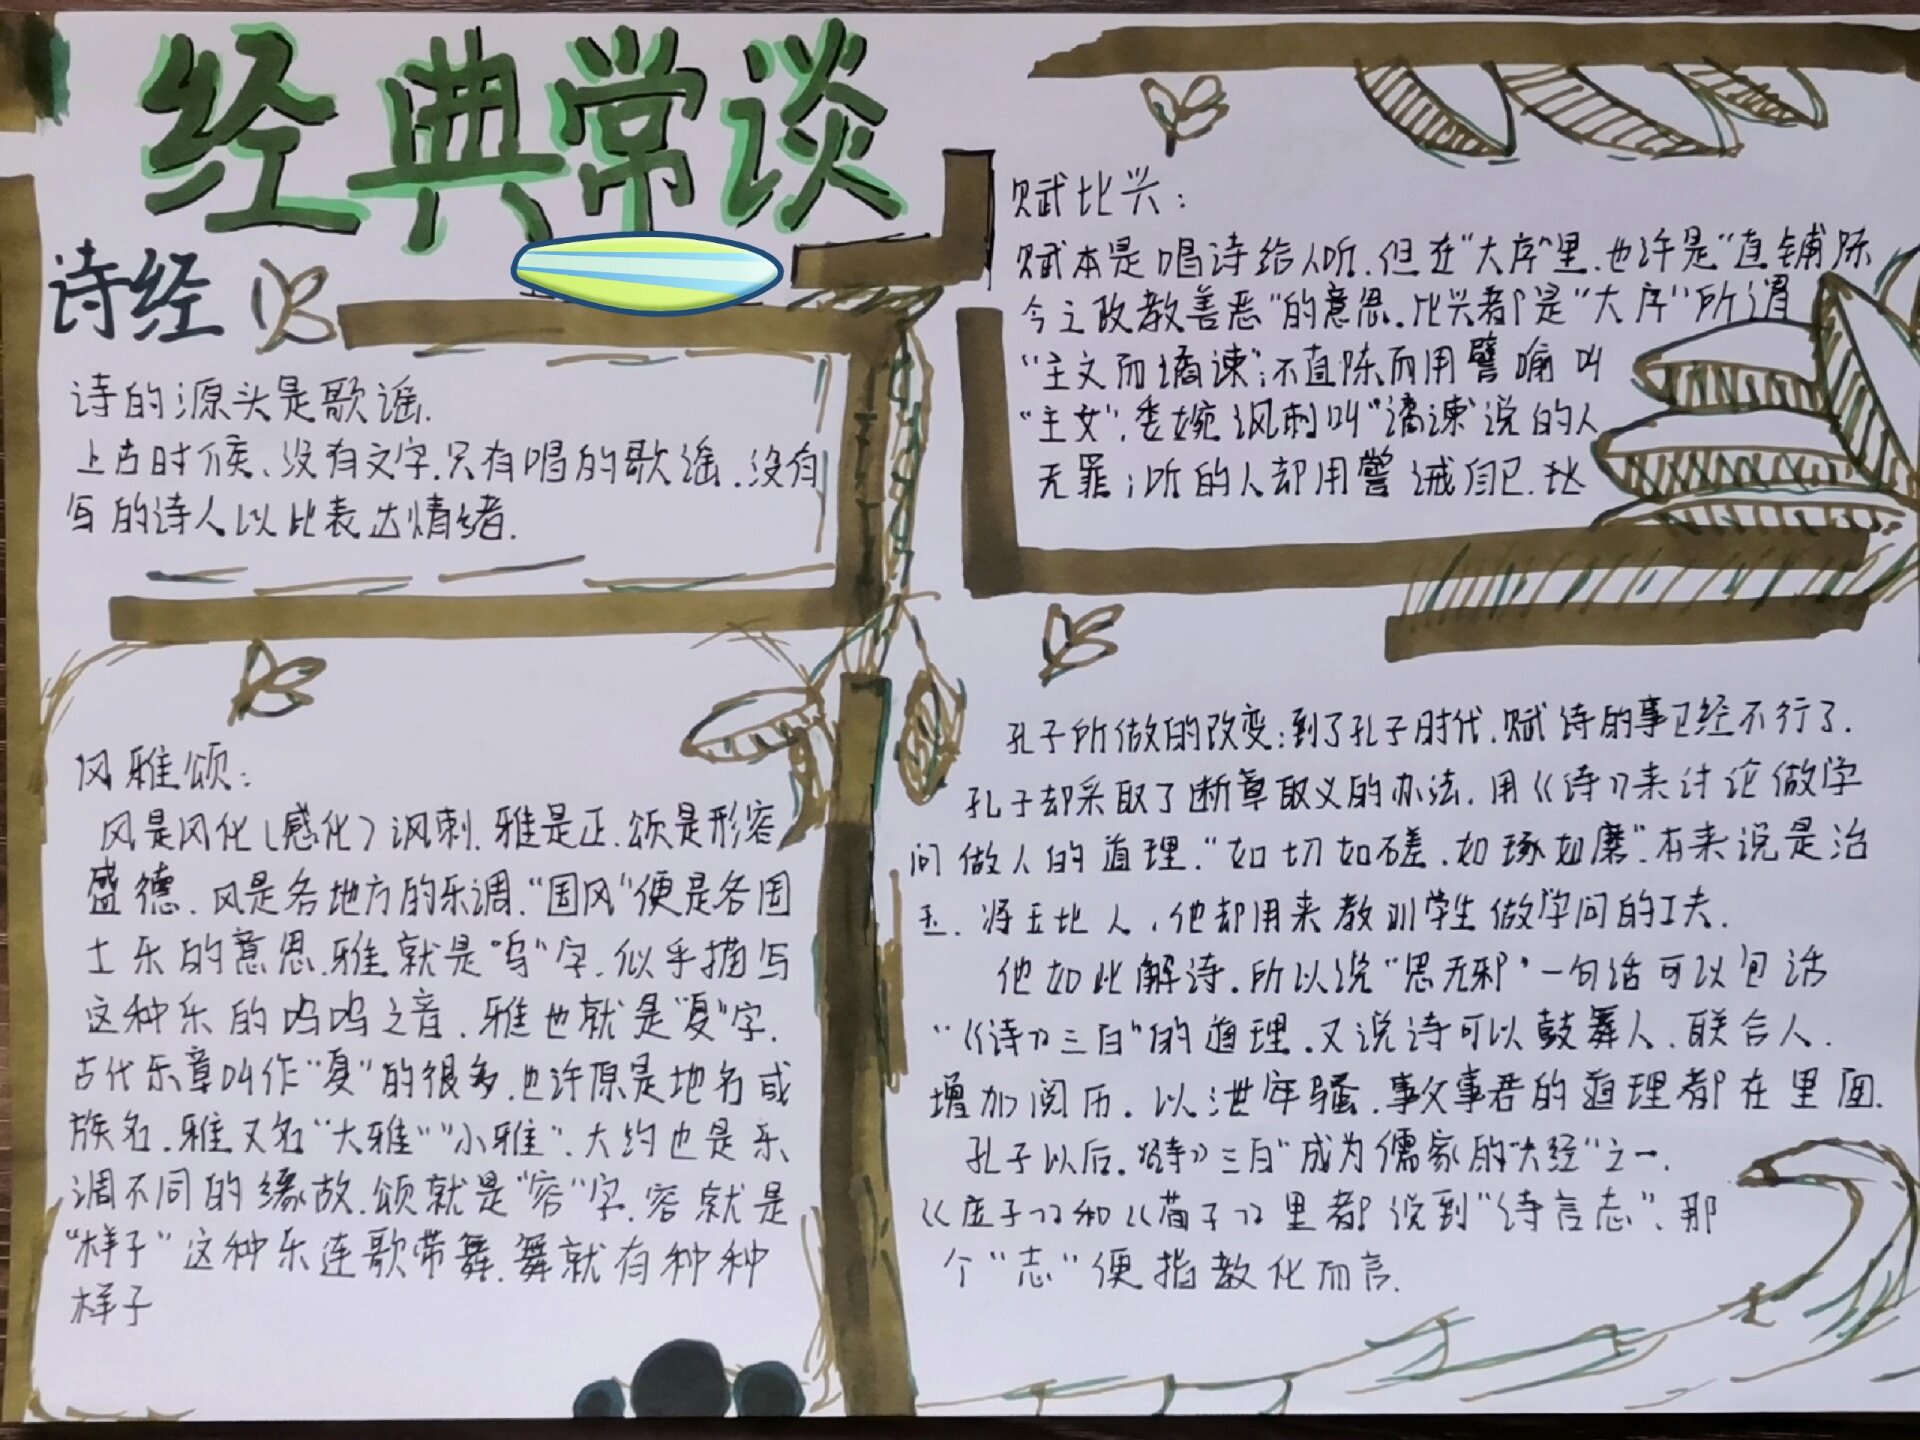 经典常谈
诗经
诗的源头是歌谣.
上古时候、没有文字.只有唱的歌谣.没有
写的诗人以比表达情绪.
风雅颂:
风是风化(感化)讽刺.雅是正.颂是形容
盛德.风是各地方的乐调."国风"便是各国
土乐的意思.雅就是"乌"字.似乎描写
这种乐的呜呜之音.雅也就是"夏"字.
古代乐章叫作"夏"的很多.也许原是地名或
族名.雅又名"大雅""小雅".大约也是乐
调不同的缘故.颂就是"容"字.容就是
"样子"这种乐连歌带舞.舞就有种种
样子
赋比兴:
赋本是唱诗给人听.但在"大序"里.也许是"直铺陈
今之政教善恶"的意思.比兴都是"大序"所谓
"主文而谲谏";不直陈而用譬喻叫
"主文".委婉讽刺叫"谲谏"说的人
无罪;听的人却用警诫自己.
孔子所做的改变:到了孔子时代.赋诗的事已经不行了.
孔子却采取了断章取义的办法.用《诗》来讨论做学
问做人的道理."如切如磋.如琢如磨".本来说是治
玉.将玉比人.他却用来教训学生做学问的工夫.
他如此解诗.所以说"思无邪"一句话可以包话
"《诗》三百"的道理.又说诗可以鼓舞人.联合人.
增加阅历.以泄牢骚.事父事君的道理都在里面.
孔子以后.《诗》三百"成为儒家的"六经"之一.
《庄子》和《荀子》里都说到"诗言志".那
个"志"便指教化而言.